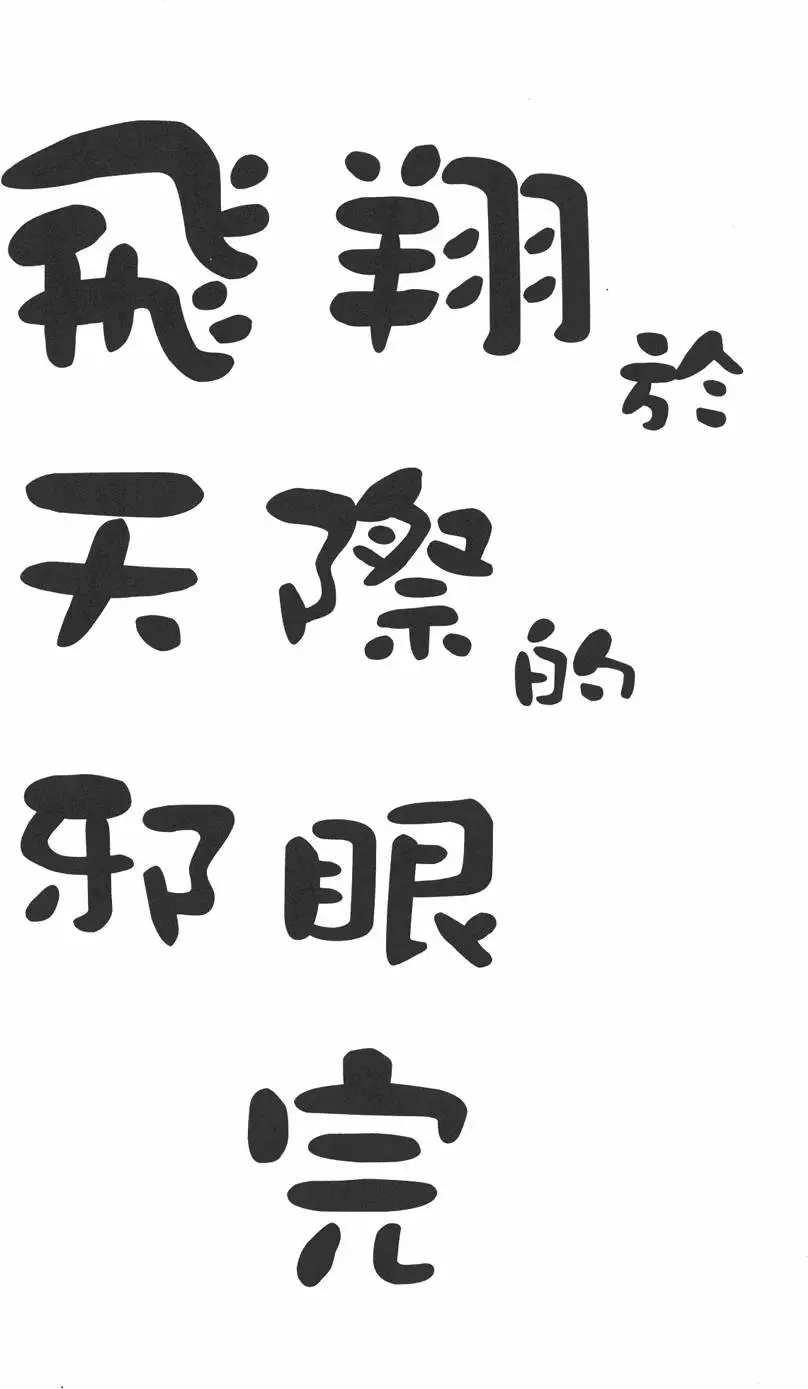 飛翔於
天際的
邪眼
完